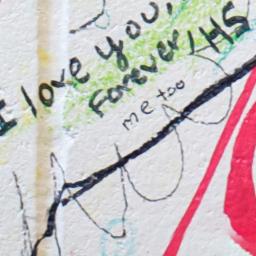 I love you,
Forever, HS
me too